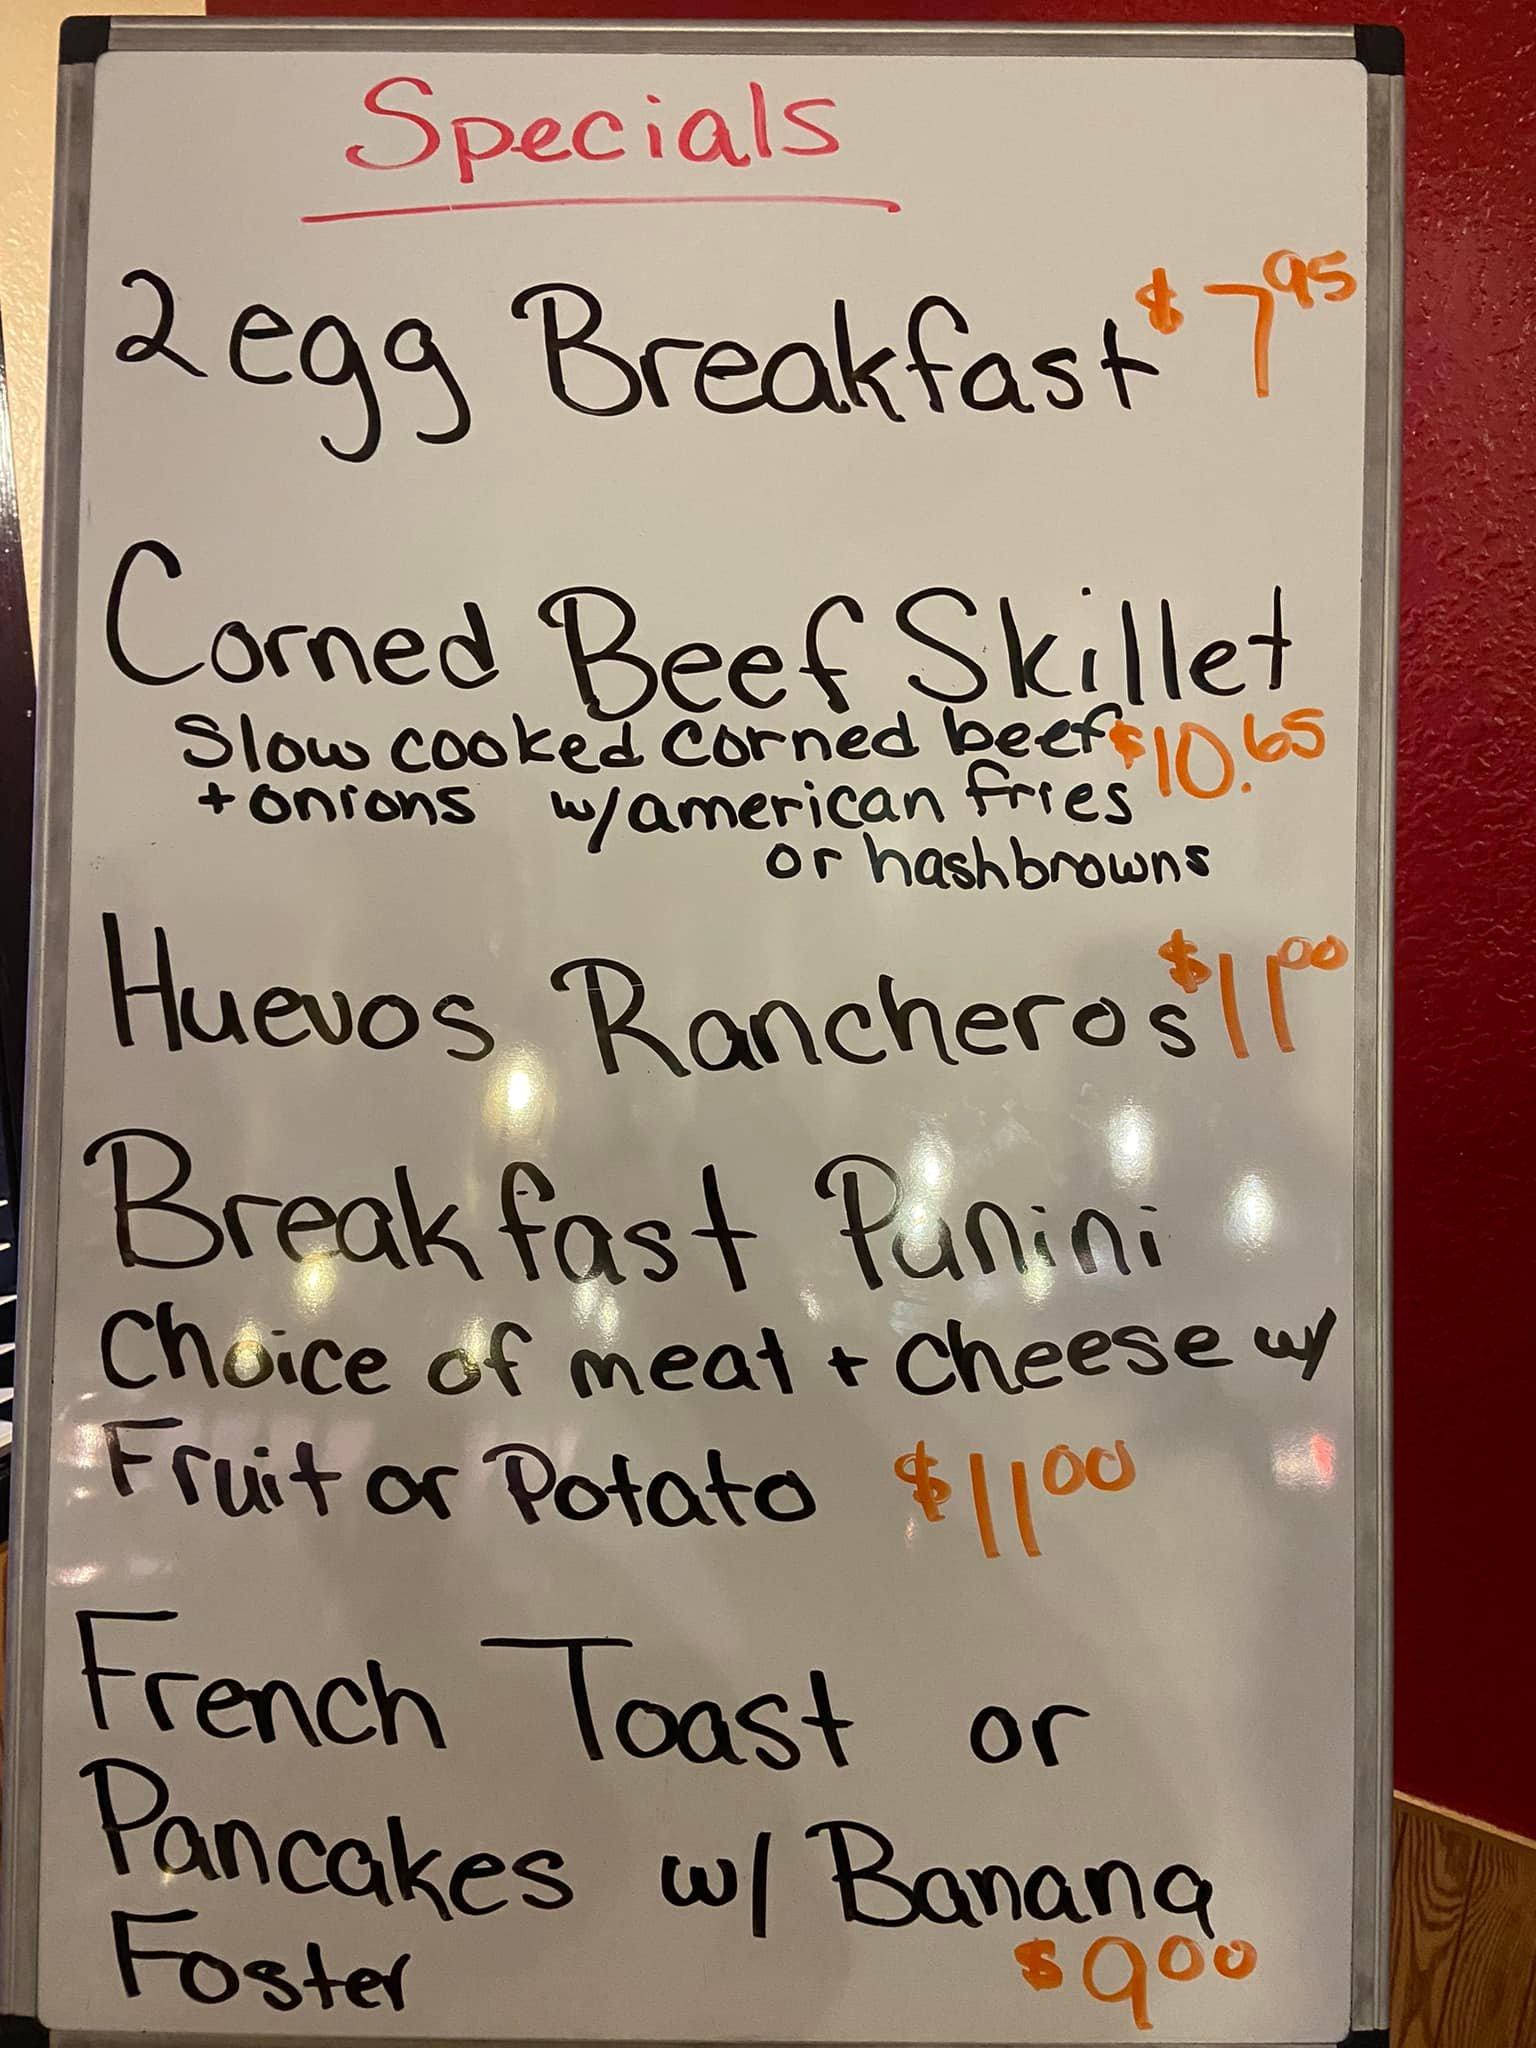 Specials
2 egg Breakfast $7.95
Corned Beef Skillet
Slow cooked corned beef $10.65
+ onions w/american fries
or hashbrowns
Huevos Rancheros $11.00
Breakfast Panini
Choice of meat + cheese w/
Fruit or Potato $11.00
French Toast or
Pancakes w/ Banana
Foster $9.00